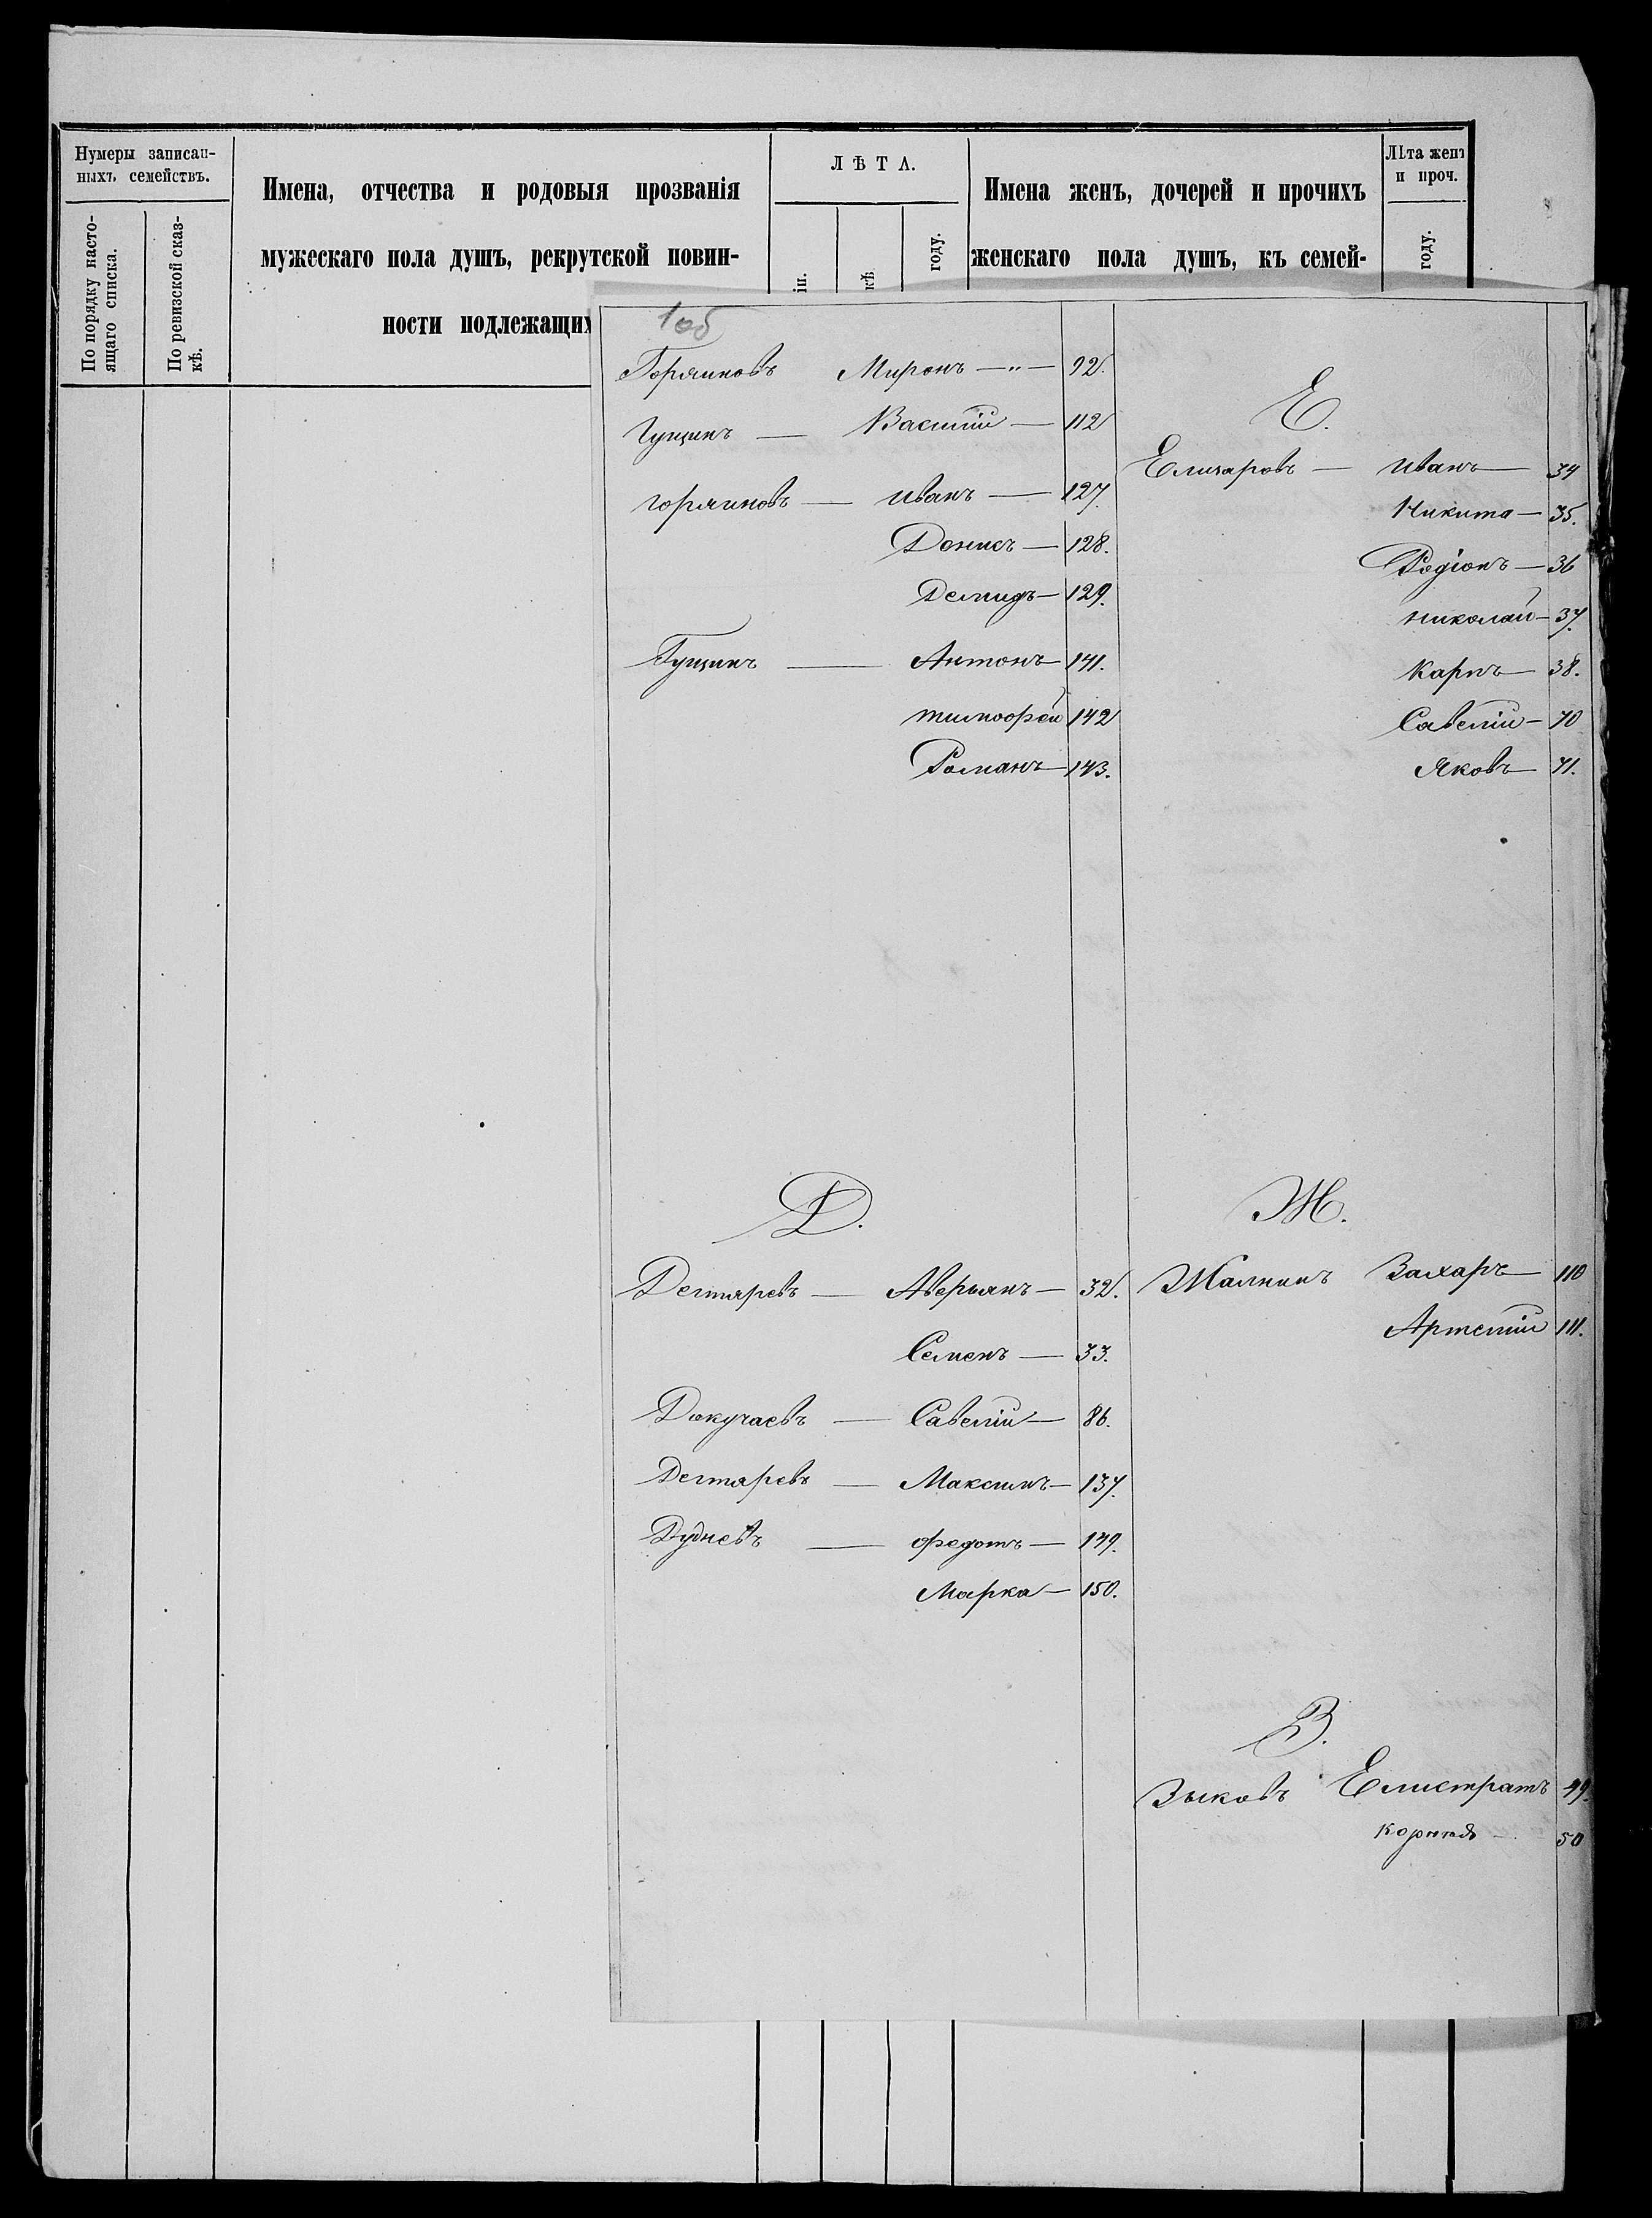 Нумеры записан-
ныхъ семействъ.
По порядку насто-
ящаго списка.
По ревизской сказ-
кѣ.
Имена, отчества и родовыя прозванія
мужескаго пола душъ, рекрутской повин-
ности подлежащих
ЛѢТА.
іи.
кѣ.
году.
Имена женъ, дочерей и прочихъ
женскаго пола душъ, къ семей-
Лѣта женъ
и проч.
году.
1об
Горяиновъ Миронъ —„— 92.
Гущинъ — Василій — 112
Горяиновъ — Иванъ — 127.
Денисъ — 128.
Демидъ — 129.
Гущинъ — Антонъ — 141.
Тимофей 142
Романъ — 143.
Д.
Дегтяревъ — Аверьянъ — 32.
Семенъ — 33.
Докучаевъ — Савелій — 86.
Дегтяревъ — Максимъ — 137.
Дудневъ — Федотъ — 149.
Марка — 150.
Е.
Елизаровъ — Иванъ — 34
Никита — 35.
Родіонъ — 36
Николай — 37.
Карпъ — 38.
Савелій — 70
Яковъ — 71.
Ж.
Жалнинъ Захаръ — 110
Артемій 111.
З.
Зыковъ Елистратъ 49.
Корней — 50